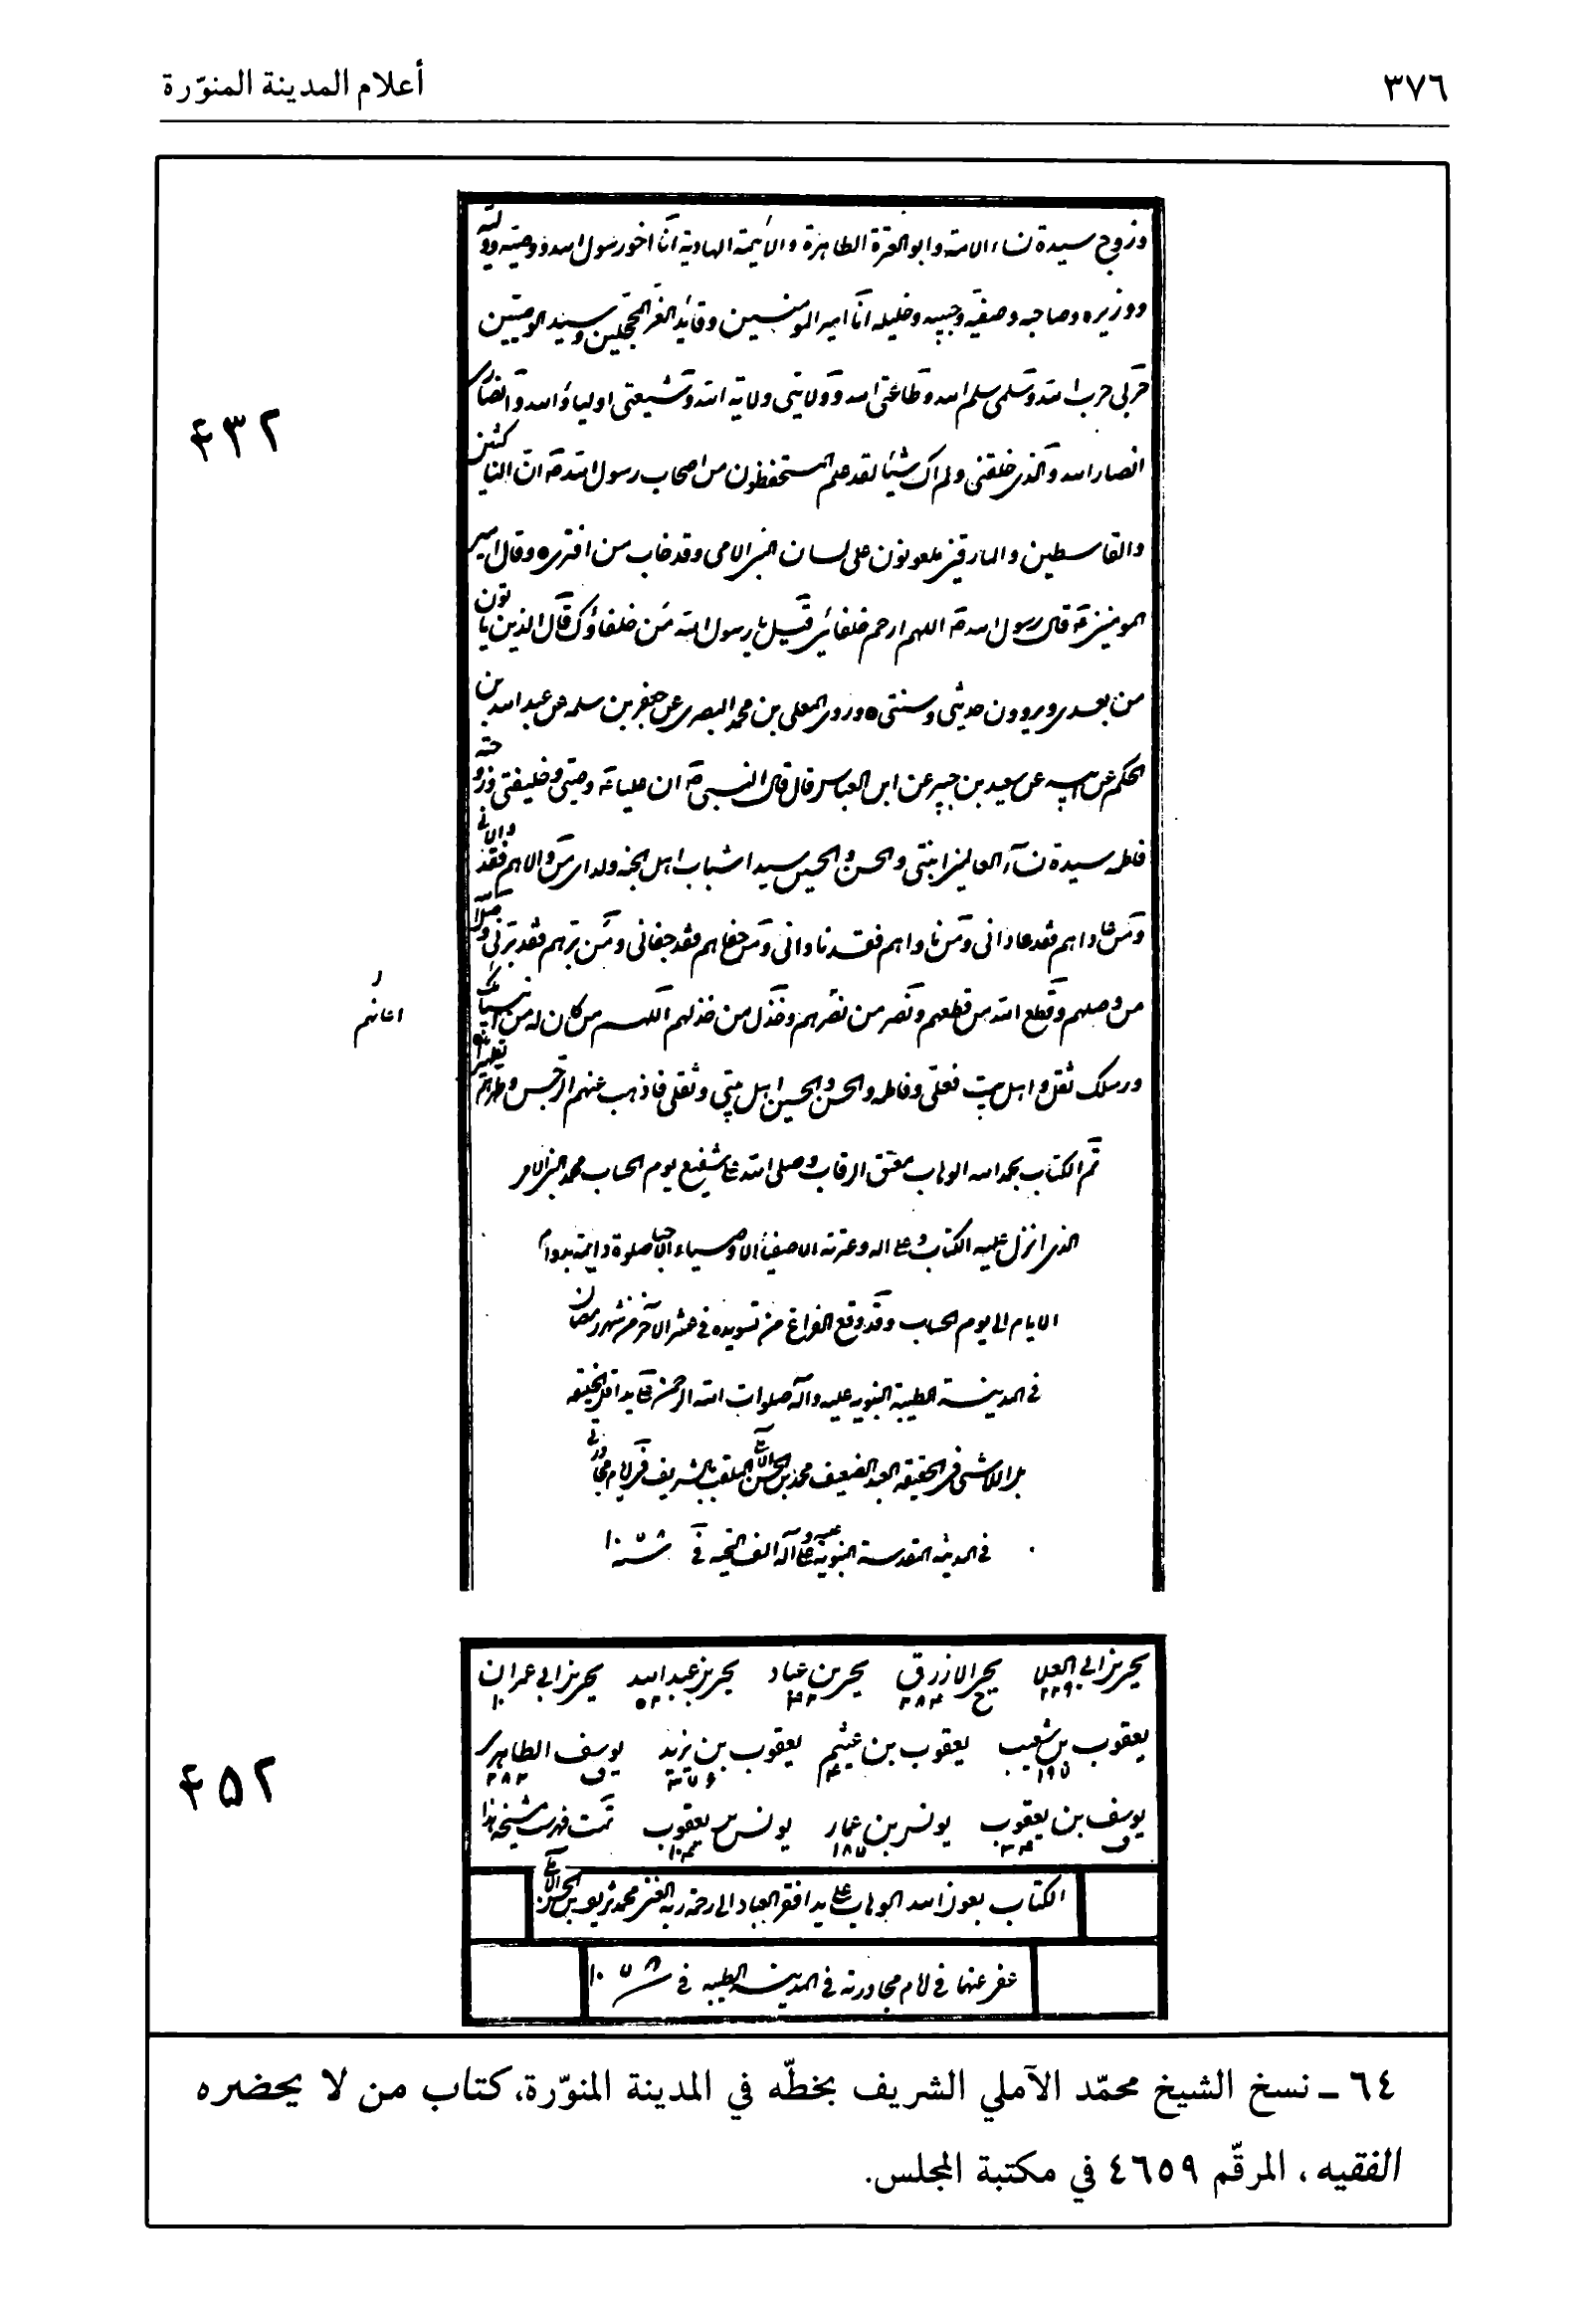 ٣٧٦
أعلام المدينة المنوّرة
وزوج سيدة نساء الامة وابو العترة الطاهرة والائمة الهادية انا اخو رسول الله ووصيه ووليه
ووزيره وصاحبه وصفيه وحبيبه وخليله انا امير المومنين وقائد الغر المحجلين وسيد الوصيين
حربي حرب الله وسلمي سلم الله وطاعتي طاعة الله وولايتي ولاية الله وشيعتي اولياء الله وانصاري
انصار الله والذي خلقني ولم اك شيئا لقد علم المستحفظون من اصحاب رسول الله ص ان الناكثين
والقاسطين والمارقين ملعونون على لسان النبي الامي وقد خاب من افترى ه وقال امير
المومنين ع قال رسول الله ص اللهم ارحم خلفائي قيل يا رسول الله من خلفاؤك قال الذين ياتون
من بعدي ويروون حديثي وسنتي ه وروى المعلى بن محمد البصري عن جعفر بن سلمه عن عبد الله بن
الحكم عن ابيه عن سعيد بن جبير عن ابن العباس قال قال النبي ص ان عليا ع وصيي وخليفتي وزوجته
فاطمه سيدة نساء العالمين ابنتي والحسن والحسين سيدا شباب اهل الجنه ولداي من والاهم فقد والاني
ومن عاداهم فقد عاداني ومن ناواهم فقد ناواني ومن جفاهم فقد جفاني ومن برهم فقد برني وصل الله
من وصلهم وقطع الله من قطعهم ونصر من نصرهم وخذل من خذلهم اللهم من كان له من انبيائك
ورسلك ثقل واهل بيت فعلي وفاطمه والحسن والحسين اهل بيتي وثقلي فاذهب عنهم الرجس وطهرهم تطهيرا
تم الكتاب بحمد الله الوهاب معتق الرقاب وصلى الله على شفيع يوم الحساب محمد النبي الامي
الذي انزل عليه الكتاب وعلى اله وعترته الاصفياء الاوصياء صلوة دايمة بدوام
الايام الى يوم الحساب وقد وقع الفراغ من تسويده في عشر الآخر من شهر رمضان
في المدينة الطيبة النبويه عليه وآله صلوات الله الرحمن على يد اقل الخليقه
بل اللاشئ في الحقيقه العبد الضعيف محمد بن الحسن الآملي الملقب بالشريف في ايام مجاورتي
في المدينه المقدسة النبوية عليه وعلى آله الف التحيه في سنه ١٠٧٨
٤٣٢
يحيى بن ابي العلا يحيى الازرق يحيى بن عباد يحيى بن عبد الله يحيى بن ابي عمران
يعقوب بن شعيب يعقوب بن عيثم يعقوب بن يزيد يوسف الطاهري
يوسف بن يعقوب يونس بن عمار يونس بن يعقوب تمت فهرست مشيخة هذا
الكتاب بعون الله الوهاب على يد افقر العباد الى رحمة ربه الغني محمد شريف بن الحسن الآملي
عفي عنهما في ايام مجاورته في المدينة الطيبه في سنة ١٠٧٨
٤٥٢
٦٤ ـ نسخ الشيخ محمّد الآملي الشريف بخطّه في المدينة المنوّرة، كتاب من لا يحضره
الفقيه، المرقّم ٤٦٥٩ في مكتبة المجلس.